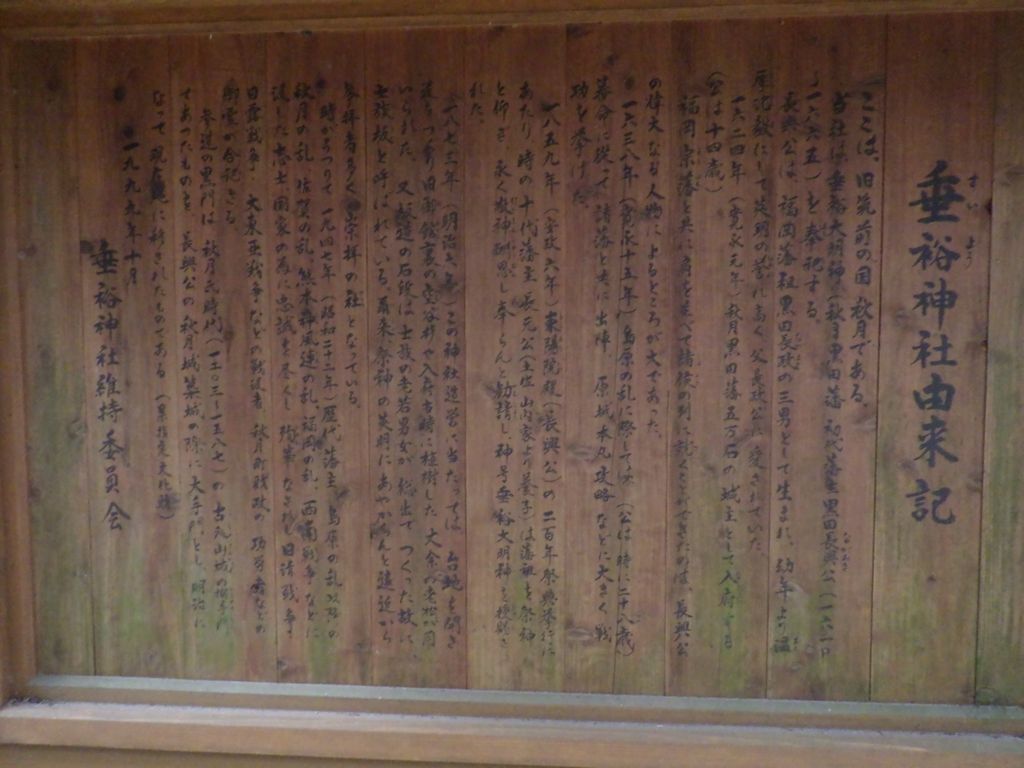 垂裕神社由来記
すい よう
ここは、旧筑前の国 秋月である。
当社は垂裕大明神(秋月黒田藩 初代藩主黒田長興公(一六一〇
ながおき
〜一六六五)を奉祀する。
長興公は、福岡藩祖黒田長政の三男として生まれ、幼年より温
厚沈毅にして英明の誉れ高く 父長政公に愛されていた。
一六二四年(寛永元年)秋月黒田藩五万石の城主として入府する
(公は十四歳)
福岡宗藩と共に肩を並べて諸侯の列に就くことができたのは、長興公
の偉大なる人物によるところが大であった。
一六三八年(寛永十五年)島原の乱に際しては(公は時に二十八歳)
幕命に従って諸藩と共に出陣、原城本丸攻略などに大きく戦
功を挙げた。
一八五九年(安政六年)東陽院殿(長興公)の二百年祭典挙行に
あたり時の十代藩主長元公(土佐山内家より養子)は藩祖を祭神
と仰ぎ、永く敬神酬恩し奉らんと勧請し、神号垂裕大明神を授与さ
れた。
一八七三年(明治六年)この神社造営に当たっては 台地を開き
いられた。又 参道の石段は士族の老若男女が 総出で つくった故に、
士族坂と呼ばれている。爾来祭神の英明にあやからんと遠近から
参拝者多く 崇拝の社となっている。
時がうつりて 一九四七年(昭和二十二年)歴代藩主、島原の乱
秋月の乱、佐賀の乱、熊本神風連の乱、福岡の乱、西南戦争などに
日露戦争、大東亜戦争などの戦没者 秋月町戦政の功労者などの
御霊が合祀さる
参道の黒門は 秋月氏時代(一二〇三〜一五八七)の 古処山城の搦手門
であったものを、長興公の秋月城築城の際に大手門とし、明治に
なって現在地に移されたものである(県指定文化財)
一九九九年十月
垂裕神社維持委員会